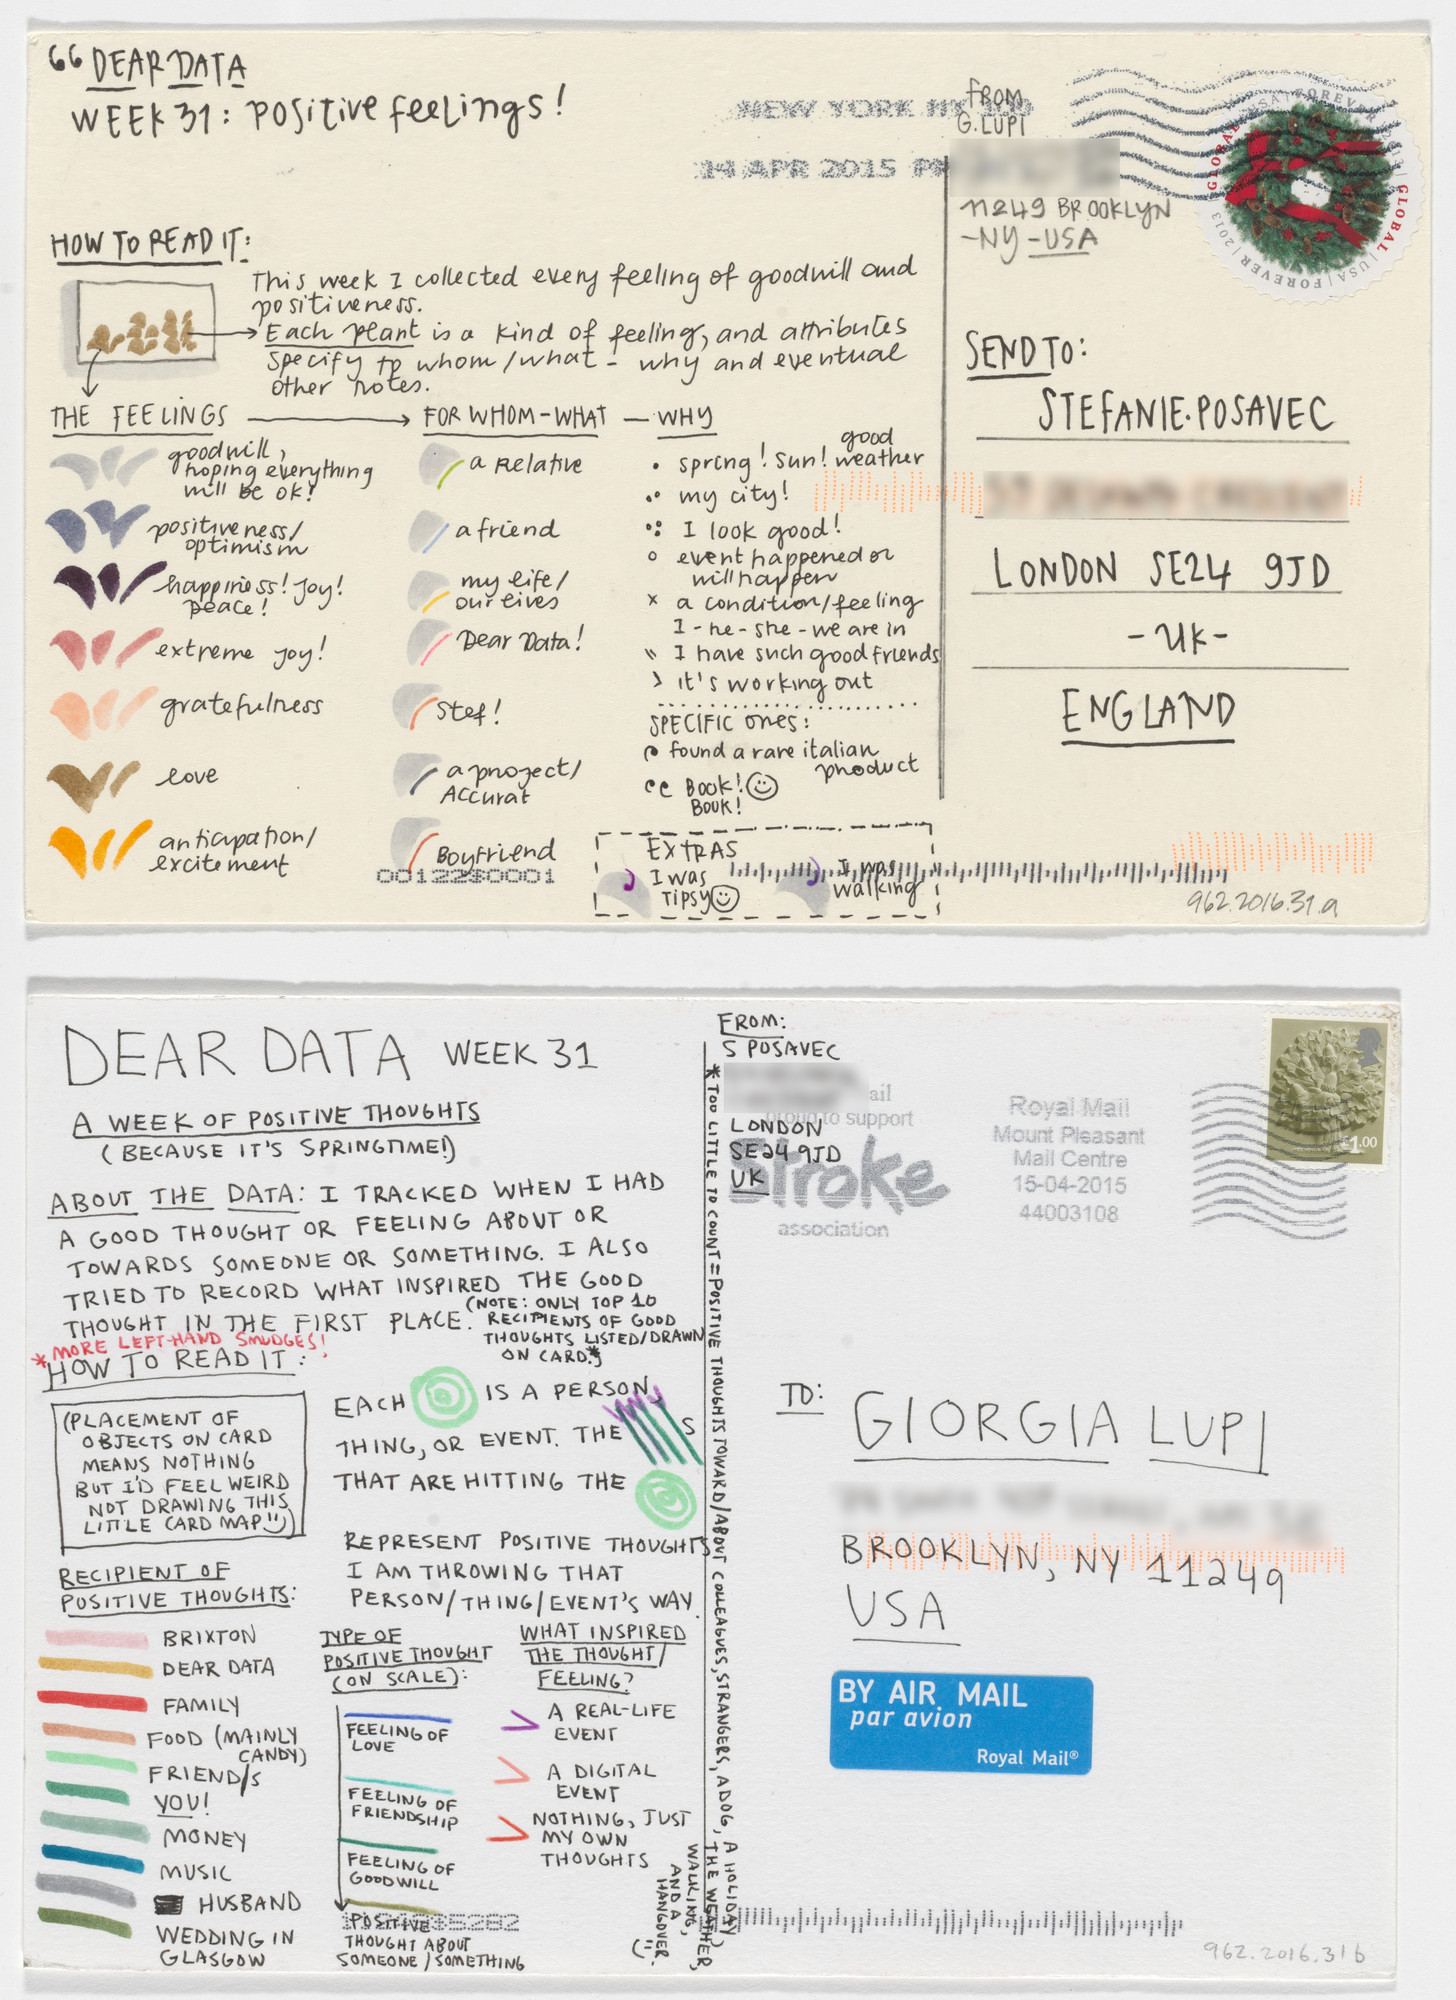 “DEAR DATA
WEEK 31: positive feelings!
NEW YORK NY 100
14 APR 2015 PM
FROM
G. LUPI
11249 BROOKLYN
-NY-USA
GLOBAL | USA | FOREVER | 2013 | GLOBAL | USA | FOREVER
HOW TO READ IT:
This week I collected every feeling of goodwill and
positiveness.
Each plant is a kind of feeling, and attributes
specify to whom/what - why and eventual
other notes.
THE FEELINGS
goodwill,
hoping everything
will be ok!
positiveness/
optimism
happiness! Joy!
peace!
extreme joy!
gratefulness
love
anticipation/
excitement
FOR WHOM-WHAT
a relative
a friend
my life/
our lives
Dear Data!
Stef!
a project/
Accurat
Boyfriend
00122$0001
WHY
spring! Sun! good
weather
my city!
I look good!
event happened or
will happen
x a condition/feeling
I-he-she-we are in
I have such good friends
it's working out
SPECIFIC ones:
found a rare italian
product
BOOK!
BOOK!
EXTRAS
I was
TIPSY
I was
walking
SEND TO:
STEFANIE.POSAVEC
LONDON SE24 9JD
-UK-
ENGLAND
962.2016.31.a
DEAR DATA WEEK 31
A WEEK OF POSITIVE THOUGHTS
(BECAUSE IT'S SPRINGTIME!)
ABOUT THE DATA: I TRACKED WHEN I HAD
A GOOD THOUGHT OR FEELING ABOUT OR
TOWARDS SOMEONE OR SOMETHING. I ALSO
TRIED TO RECORD WHAT INSPIRED THE GOOD
THOUGHT IN THE FIRST PLACE.
(NOTE: ONLY TOP 10
RECIPIENTS OF GOOD
THOUGHTS LISTED/DRAWN
ON CARD.*)
*MORE LEFT-HAND SMUDGES!
HOW TO READ IT:
(PLACEMENT OF
OBJECTS ON CARD
MEANS NOTHING
BUT I'D FEEL WEIRD
NOT DRAWING THIS
LITTLE CARD MAP :))
EACH IS A PERSON,
THING, OR EVENT. THE S
THAT ARE HITTING THE
REPRESENT POSITIVE THOUGHTS
I AM THROWING THAT
PERSON/THING/EVENT'S WAY.
RECIPIENT OF
POSITIVE THOUGHTS:
BRIXTON
DEAR DATA
FAMILY
FOOD (MAINLY
CANDY)
FRIEND/S
YOU!
MONEY
MUSIC
HUSBAND
WEDDING IN
GLASGOW
TYPE OF
POSITIVE THOUGHT
(ON SCALE):
FEELING OF
LOVE
FEELING OF
FRIENDSHIP
FEELING OF
GOODWILL
POSITIVE
THOUGHT ABOUT
SOMEONE/SOMETHING
WHAT INSPIRED
THE THOUGHT/
FEELING?
A REAL-LIFE
EVENT
A DIGITAL
EVENT
NOTHING, JUST
MY OWN
THOUGHTS
*TOO LITTLE TO COUNT = POSITIVE THOUGHTS TOWARD/ABOUT COLLEAGUES, STRANGERS, A DOG, A HOLIDAY
THE WEATHER,
WALKING,
AND A
HANGOVER.
FROM:
S POSAVEC
LONDON
SE24 9JD
UK
ail
proud to support
Stroke
association
Royal Mail
Mount Pleasant
Mail Centre
15-04-2015
44003108
£1.00
TO:
GIORGIA LUPI
BROOKLYN, NY 11249
USA
BY AIR MAIL
par avion
Royal Mail®
962.2016.31b